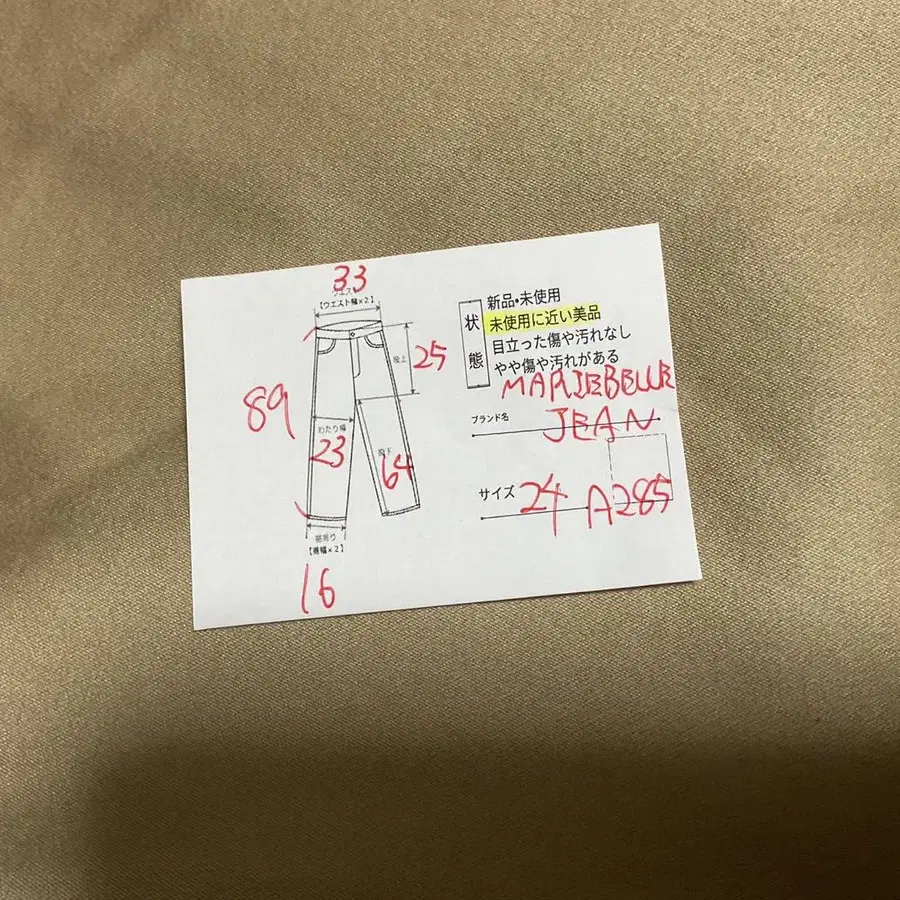 33
ウエスト
【ウエスト幅×2】
股上
25
89
わたり幅
23
股下
64
裾周り
【裾幅×2】
16
状態
新品・未使用
未使用に近い美品
目立った傷や汚れなし
やや傷や汚れがある
MARIEBELLE
ブランド名
JEAN
サイズ
24 A285